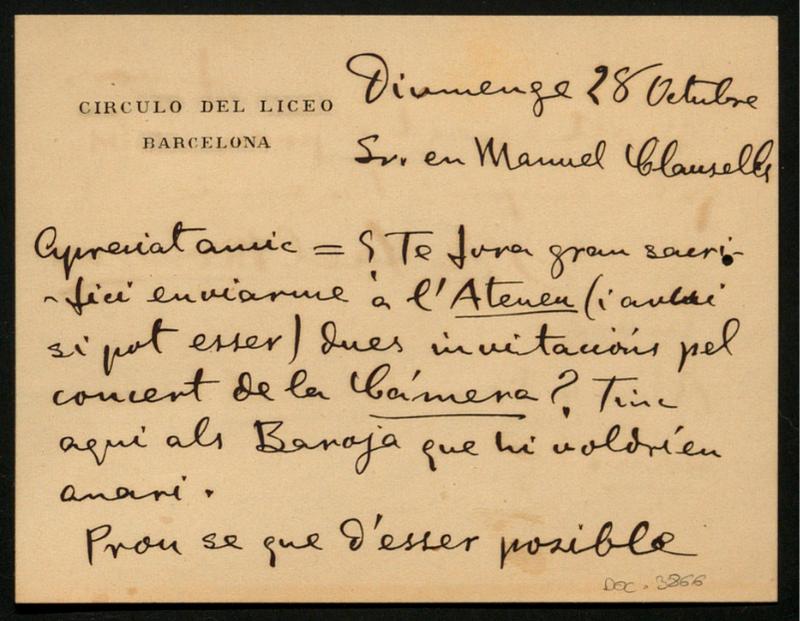 CIRCULO DEL LICEO
BARCELONA
Diumenge 28 Octubre
Sr. en Manuel Clausells
Apreciat amic = ¿Te fora gran sacri-
-fici enviarme à l'Ateneu (i avui
si pot esser) dues invitacións pel
concert de la Cámera? Tinc
aqui als Baroja que hi voldríen
anari.
Prou se que d'esser posible
DOC. 3866